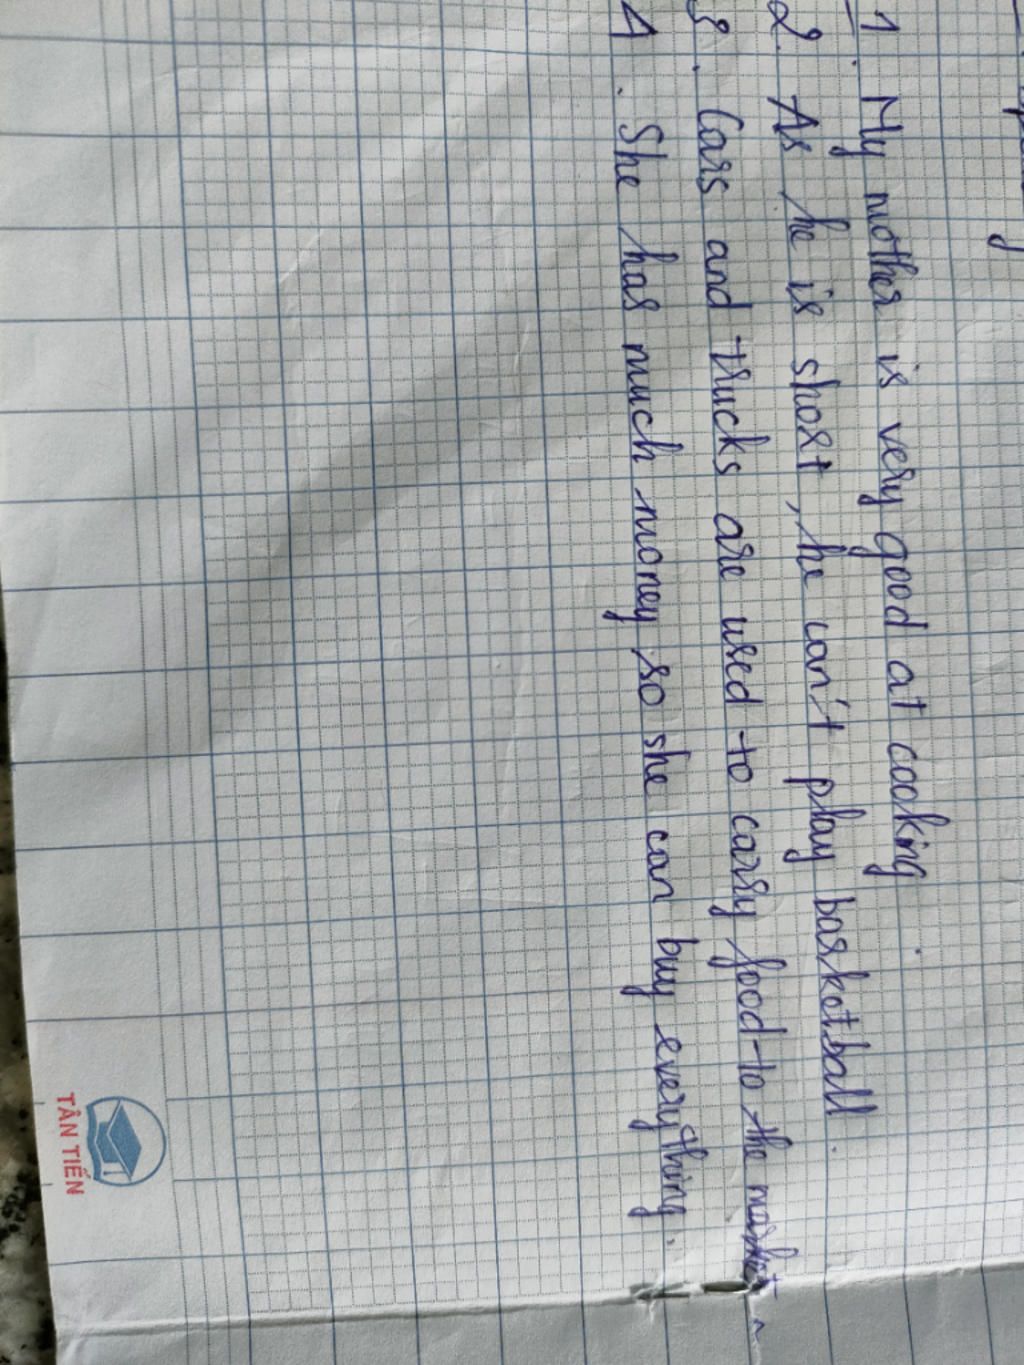 1. My mother is very good at cooking.
2. As he is short, he can't play basketball.
3. Cars and trucks are used to carry food to the market.
4. She has much money so she can buy everything.
TÂN TIẾN